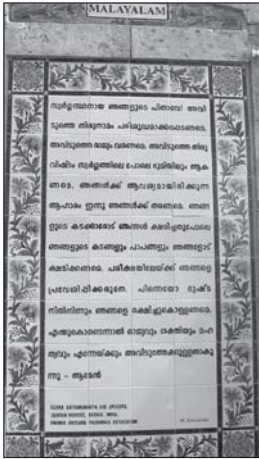 MALAYALAM
സ്വർഗ്ഗസ്ഥനായ ഞങ്ങളുടെ പിതാവേ! അവി
ടുത്തെ തിരുനാമം പരിശുദ്ധമാക്കപ്പെടണമെ,
അവിടുത്തെ രാജ്യം വരണമെ. അവിടുത്തെ തിരു
വിഷ്ടം സ്വർഗ്ഗത്തിലെ പോലെ ഭൂമിയിലും ആക
ണമെ. ഞങ്ങൾക്ക് ആവശ്യമായിരിക്കുന്ന
ആഹാരം ഇന്നു ഞങ്ങൾക്ക് തരണമെ. ഞങ്ങ
ളുടെ കടക്കാരോട് ഞങ്ങൾ ക്ഷമിച്ചതുപോലെ
ഞങ്ങളുടെ കടങ്ങളും പാപങ്ങളും ഞങ്ങളോട്
ക്ഷമിക്കണമെ. പരീക്ഷയിലേയ്ക്ക് ഞങ്ങളെ
പ്രവേശിപ്പിക്കരുതേ. പിന്നെയോ ദുഷ്ട
നിൽനിന്നും ഞങ്ങളെ രക്ഷിച്ചുകൊള്ളണമെ.
എന്തുകൊണ്ടെന്നാൽ രാജ്യവും ശക്തിയും മഹ
ത്വവും എന്നേയ്ക്കും അവിടുത്തേക്കുള്ളതാകു
ന്നു – ആമേൻ